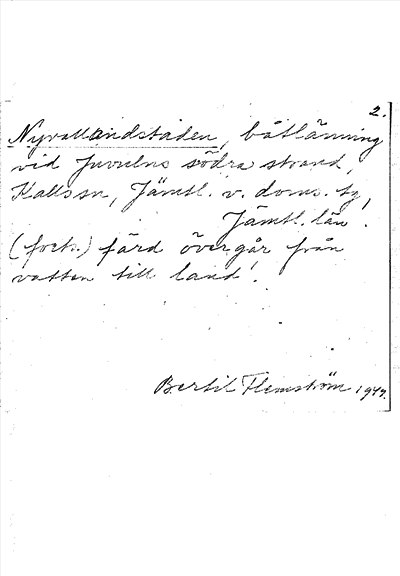 2.
Nyvallandstaden, båtlänning
vid Juvulns södra strand,
Kallssn, Jämtl. v. doms. tg,
Jämtl. län.
(forts.) färd övergår från
vatten till land.
Bertil Flemström